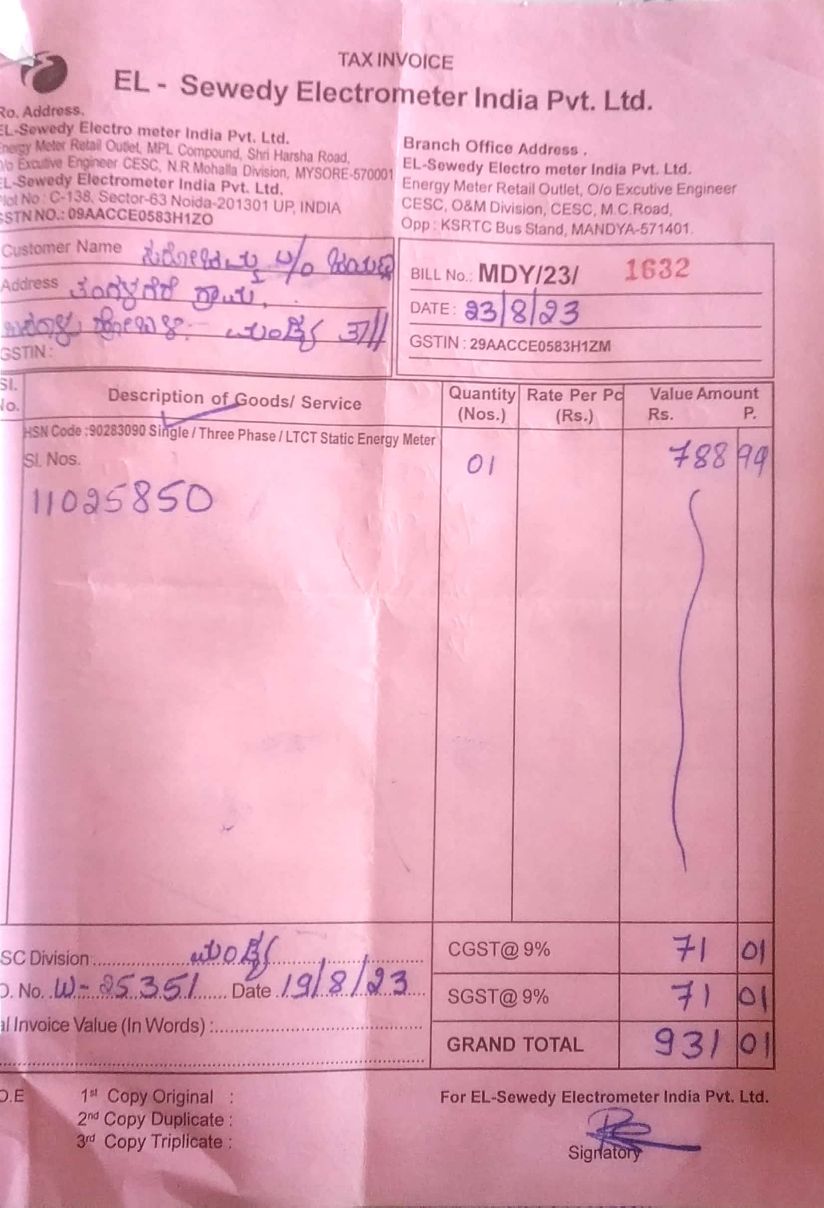 TAX INVOICE
EL - Sewedy Electrometer India Pvt. Ltd.
Ro. Address.
EL-Sewedy Electro meter India Pvt. Ltd.
Energy Meter Retail Outlet, MPL Compound, Shri Harsha Road,
O/o Excutive Engineer CESC, N.R.Mohalla Division, MYSORE-570001
EL-Sewedy Electrometer India Pvt. Ltd.
Plot No : C-138, Sector-63 Noida-201301 UP, INDIA
GSTN NO.: 09AACCE0583H1ZO
Branch Office Address .
EL-Sewedy Electro meter India Pvt. Ltd.
Energy Meter Retail Outlet, O/o Excutive Engineer
CESC, O&M Division, CESC, M.C.Road,
Opp : KSRTC Bus Stand, MANDYA-571401.
Customer Name W/o
Address
ಮಂಡ್ಯ
GSTIN :
BILL No.: MDY/23/ 1632
DATE : 23/8/23
GSTIN : 29AACCE0583H1ZM
Sl. No. Description of Goods/ Service Quantity (Nos.) Rate Per Pc (Rs.) Value Amount Rs. P.
HSN Code :90283090 Single / Three Phase / LTCT Static Energy Meter
Sl. Nos. 01 788 99
11025850
SC Division ಮಂಡ್ಯ CGST@ 9% 71 01
O. No. W-25351 Date 19/8/23 SGST@ 9% 71 01
al Invoice Value (In Words) : GRAND TOTAL 931 01
O.E 1st Copy Original :
2nd Copy Duplicate :
3rd Copy Triplicate :
For EL-Sewedy Electrometer India Pvt. Ltd.
Signatory